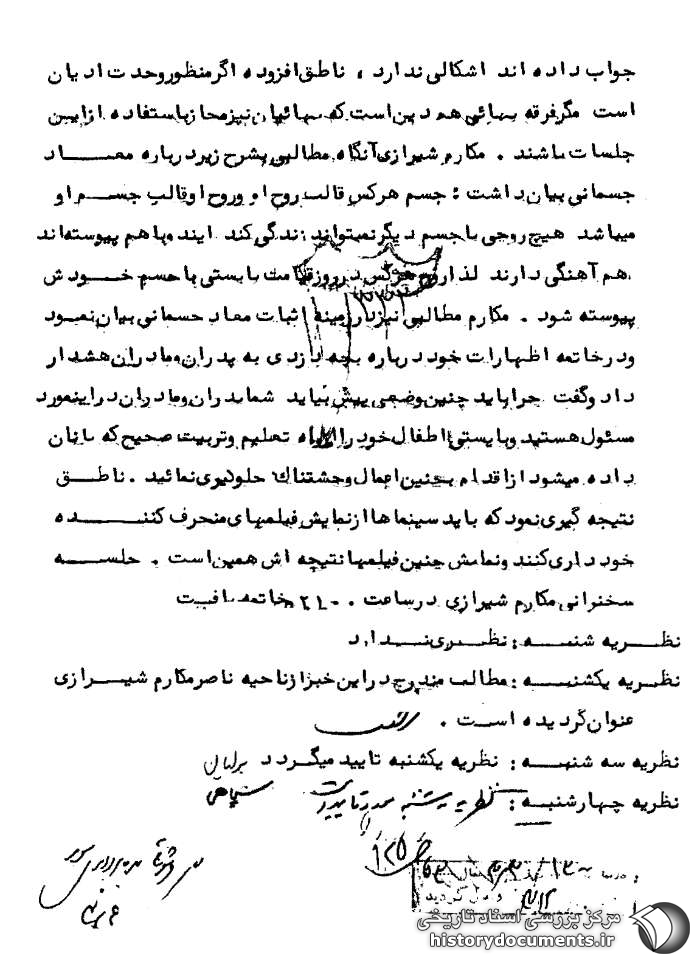 جواب داده اند اشکالی ندارد ، ناطق افزوده اگر منظور وحدت ادیان
است مگر فرقه بهائی هم دین است که بهائیان نیز مجاز باستفاده از این
جلسات باشند . مکارم شیرازی آنگاه مطالبی بشرح زیر درباره معاد
جسمانی بیان داشت : جسم هرکس قالب روح او و روح او قالب جسم او
میباشد هیچ روحی با جسم دیگر نمیتواند زندگی کند ایندو باهم پیوسته اند
هم آهنگی دارند لذا روح هرکس در روز قیامت بایستی با جسم خودش
پیوسته شود . مکارم مطالبی نیز در زمینه اثبات معاد جسمانی بیان نمود
و در خاتمه اظهارات خود درباره بچه دزدی به پدران و مادران هشدار
داد و گفت چرا باید چنین وضعی پیش بیاید شما پدران و مادران در اینمورد
مسئول هستید و بایستی اطفال خود را با تعلیم و تربیت صحیح که بانان
داده میشود از اقدام بچنین اعمال وحشتناک جلوگیری نمائید . ناطق
نتیجه گیری نمود که باید سینماها از نمایش فیلمهای منحرف کننده
خودداری کنند و نمایش چنین فیلمها نتیجه اش همین است . جلسه
سخنرانی مکارم شیرازی در ساعت ۲۱۰۰ خاتمه یافت
نظریه شنبه : نظری ندارد
نظریه یکشنبه : مطالب مندرج در این خبر از ناحیه ناصر مکارم شیرازی
عنوان گردیده است .
نظریه سه شنبه : نظریه یکشنبه تایید میگردد
نظریه چهارشنبه : نظریه سه شنبه مورد تایید است
مرکز بررسی اسناد تاریخی
historydocuments.ir